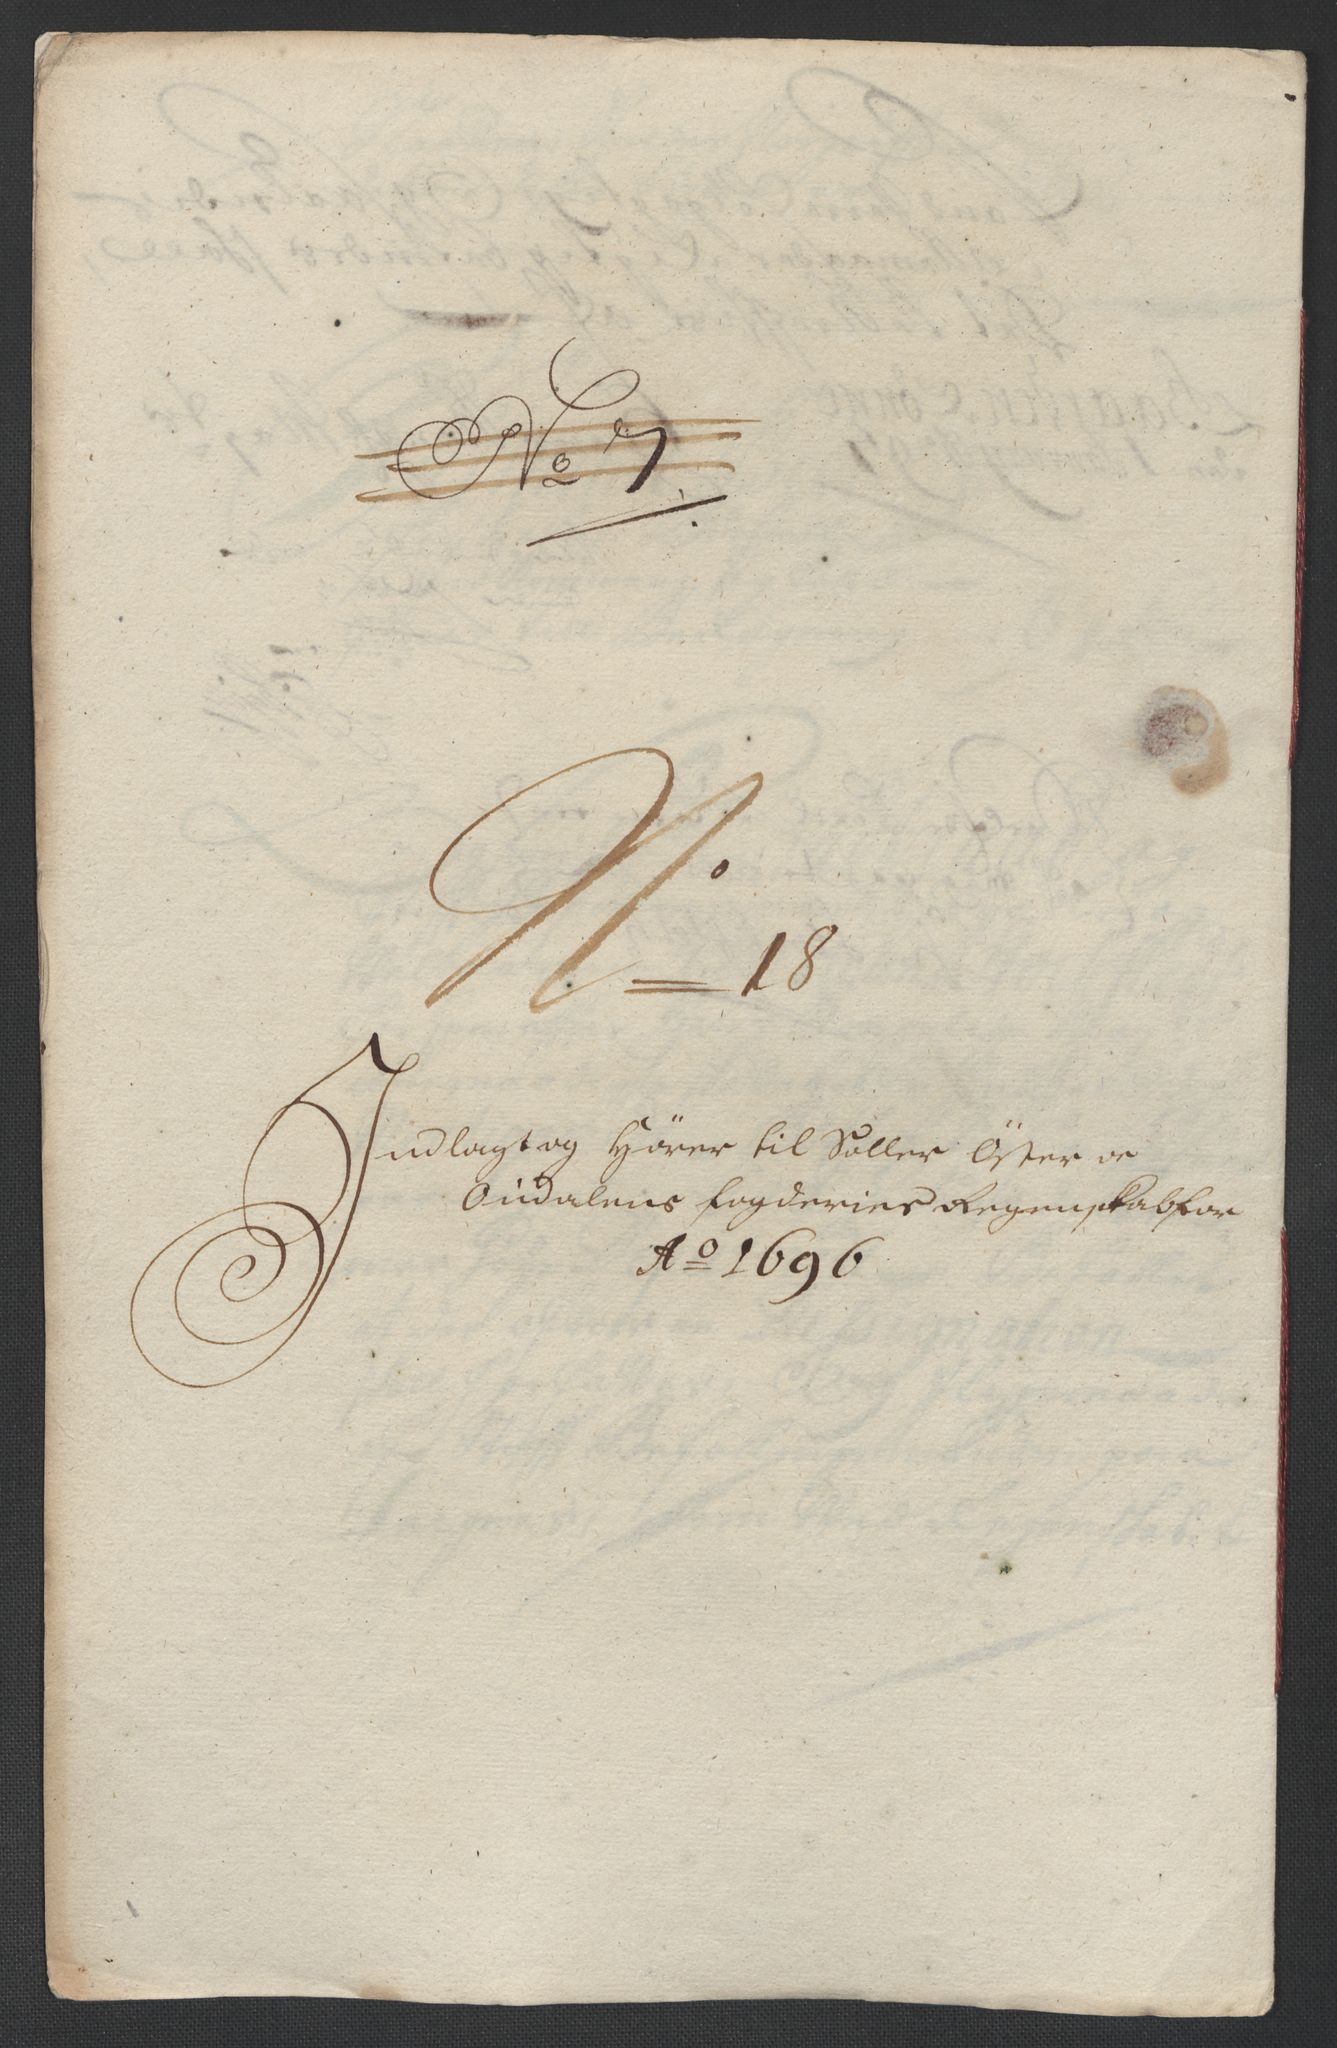 No 7
No 18
Indlagt og Hörer til Soller Öster oc
Oudalens fogderies Regenskab for
Ao 1696